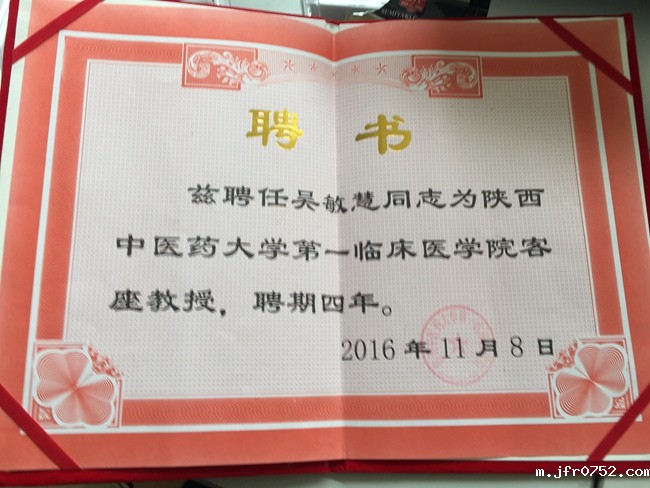 聘书
兹聘任吴敏慧同志为陕西
中医药大学第一临床医学院客
座教授，聘期四年。
2016年11月8日
m.jfr0752.com